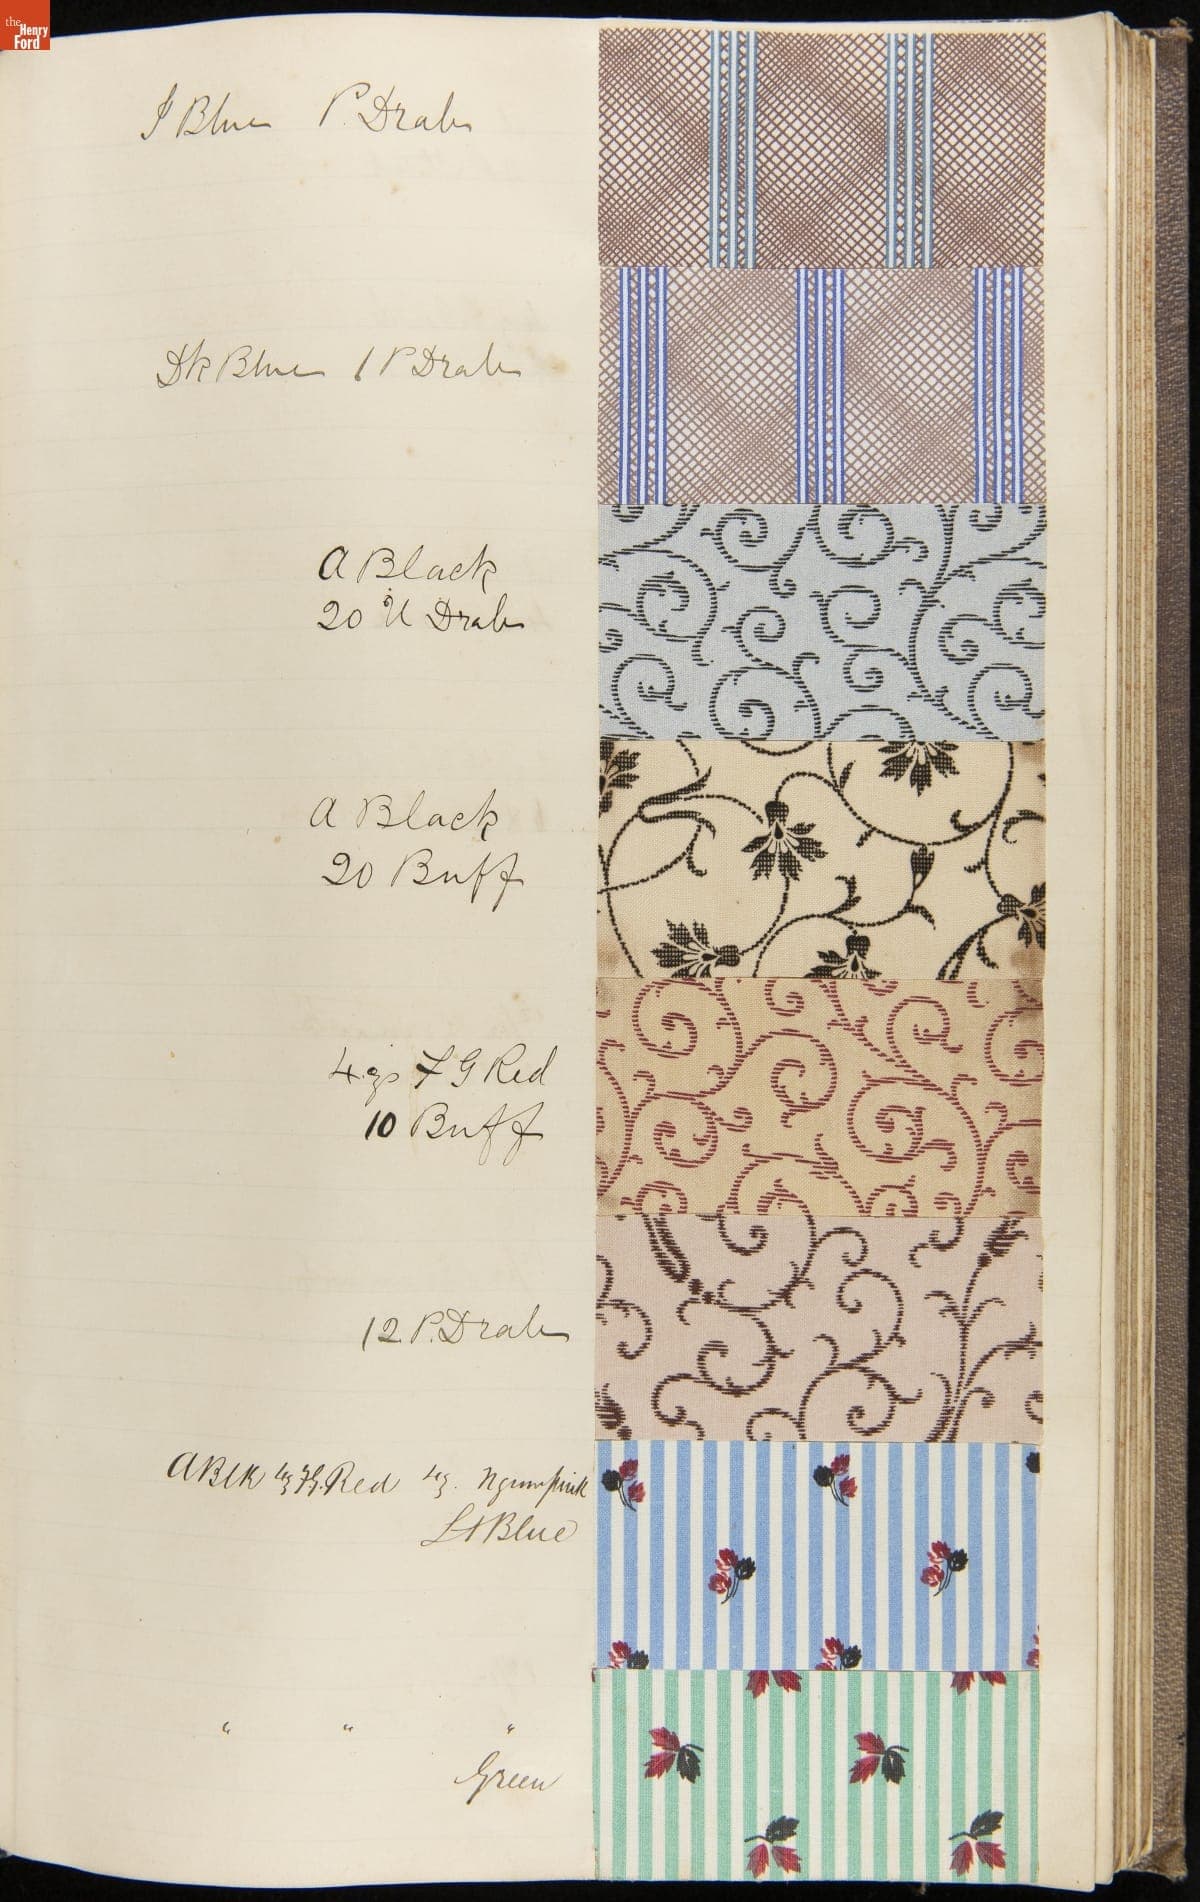 the
Henry
Ford
Blue P. Drab
Dk Blue 1 P Drab
A Black
20 U Drab
A Black
20 Buff
4.gs F G Red
10 Buff
12 P. Drab
A Blk 4g F.G. Red 4g.
Lt Blue
" " "
Green